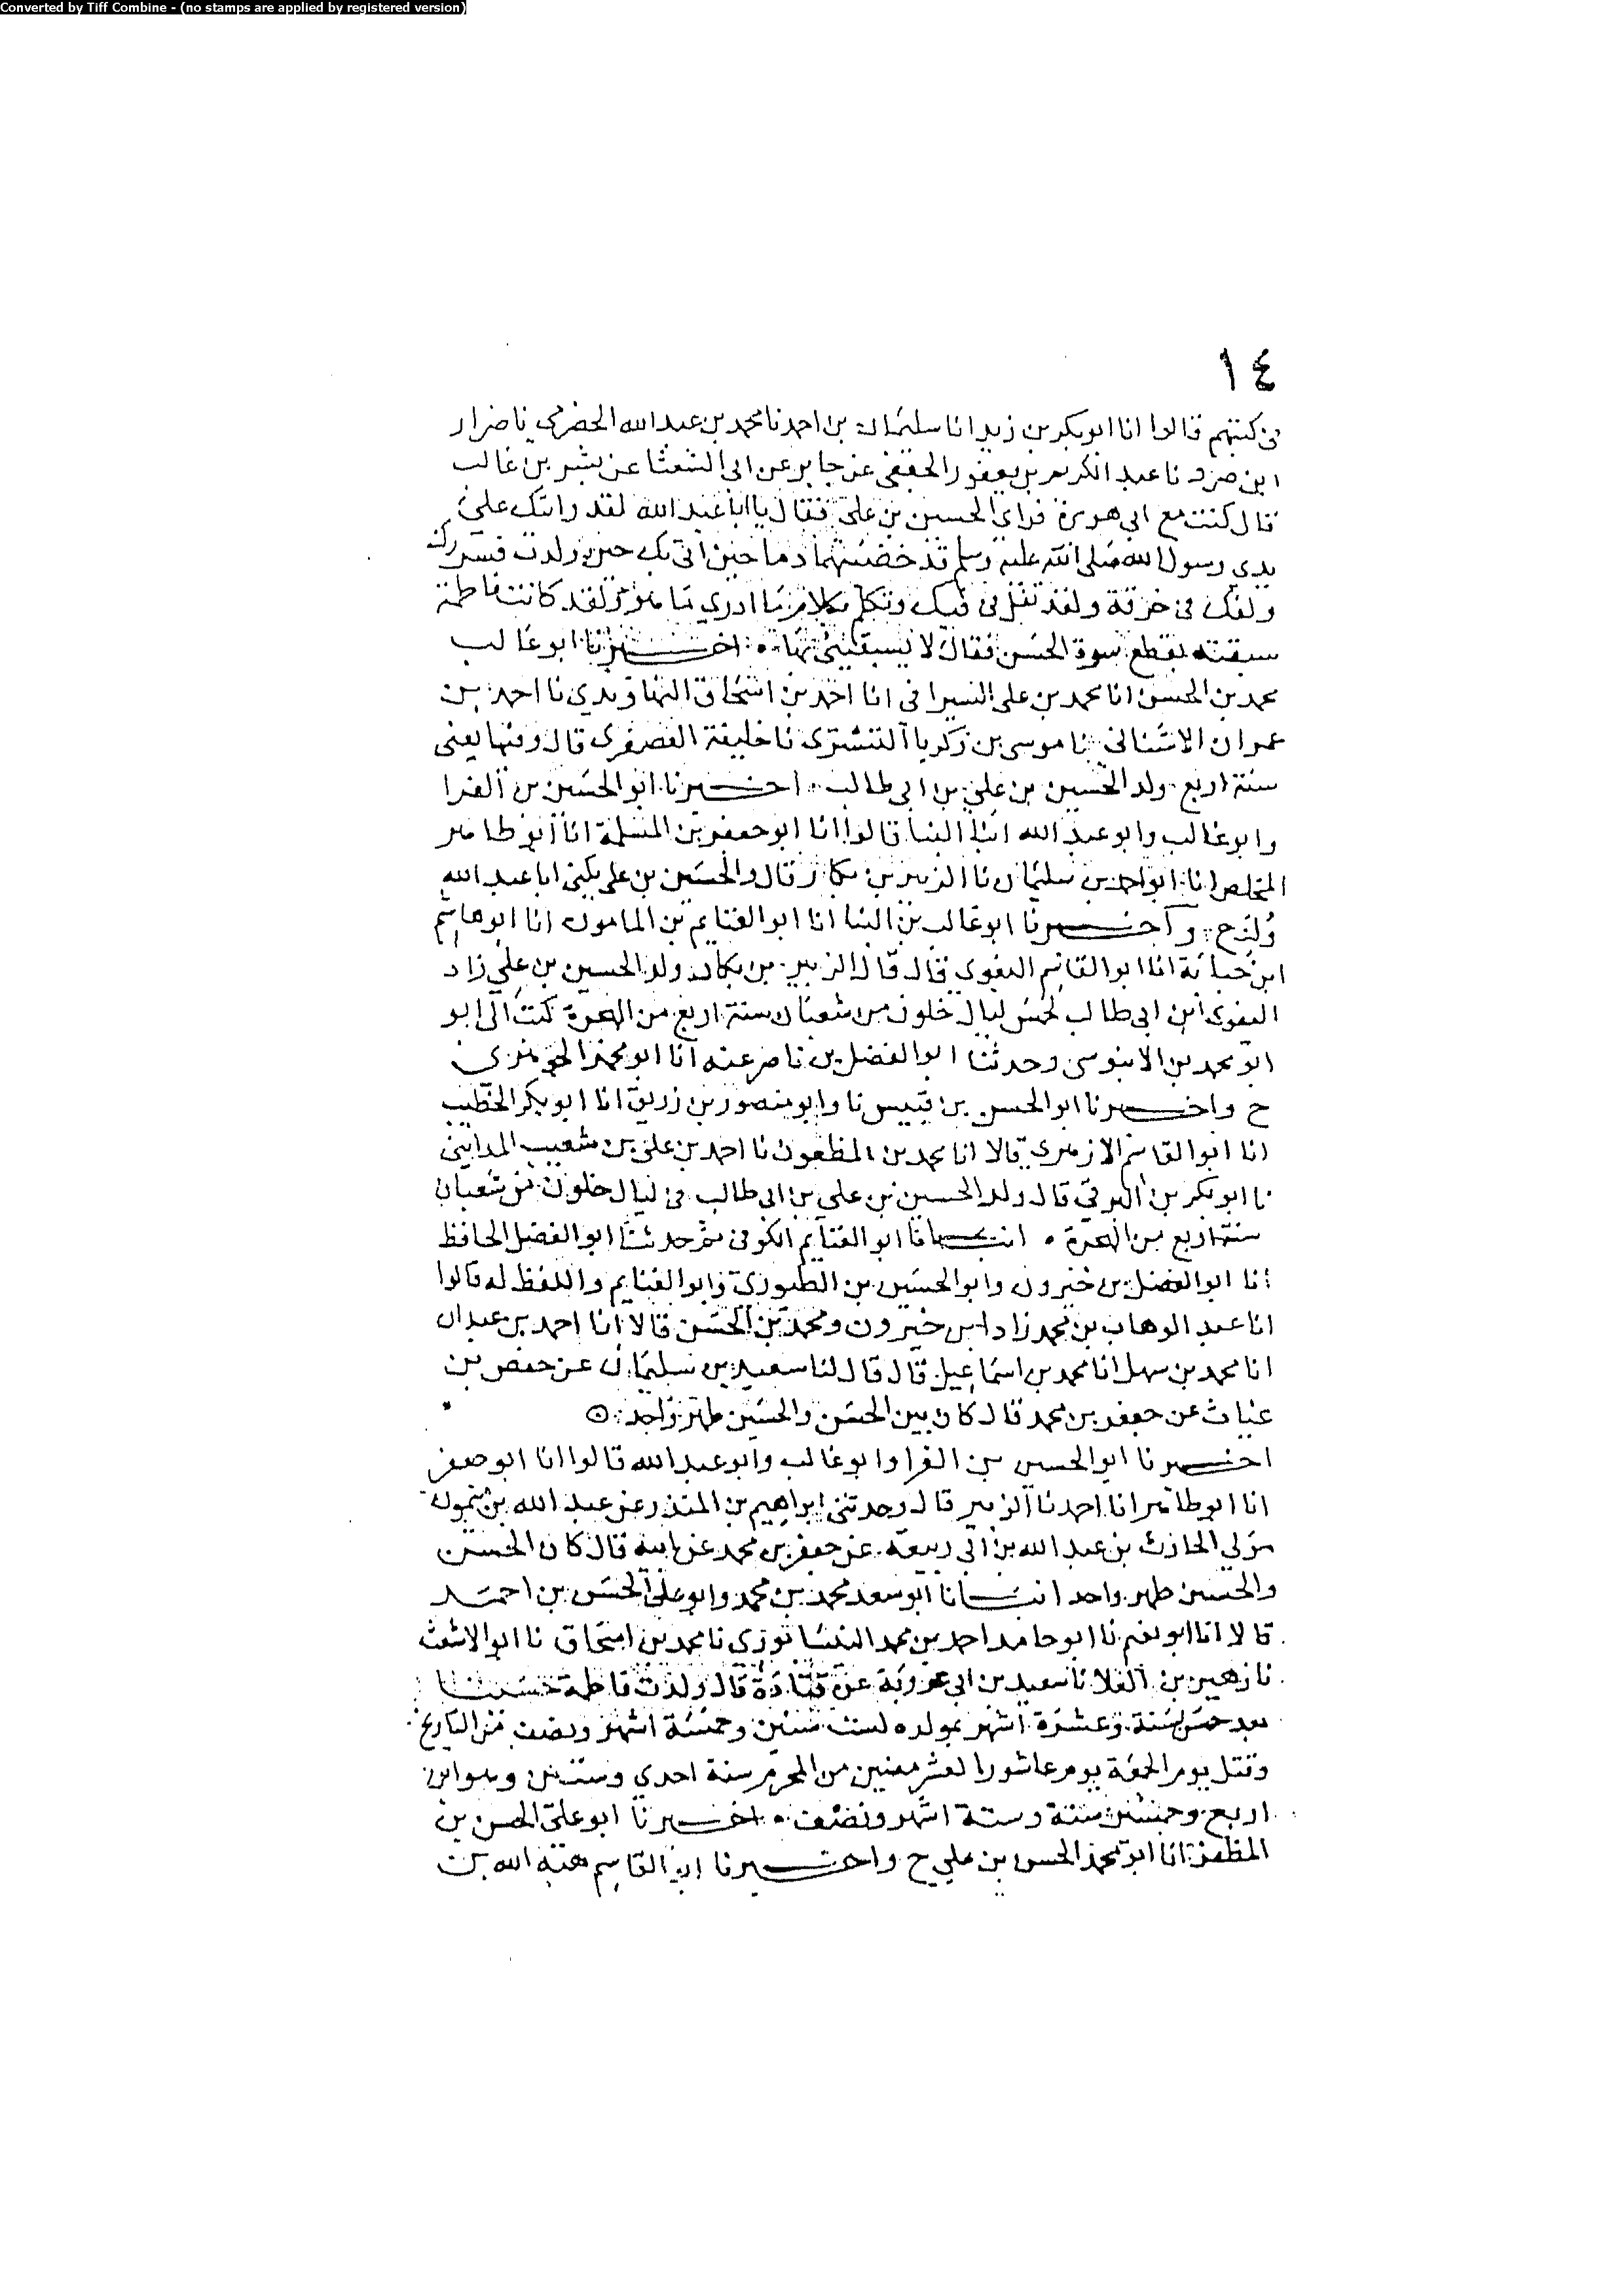 Converted by Tiff Combine - (no stamps are applied by registered version)
١٤
في كتبهم قالوا انا ابو بكر بن زيد انا سليمان بن احمد نا محمد بن عبد الله الحضرمي نا ضرار
ابن صرد نا عبد الكريم بن يعفور الجعفي عن جابر عن ابي الشعثا عن بشر بن غالب
قال كنت مع ابي هريرة فراى الحسين بن علي فقال يا ابا عبد الله لقد رايتك على
يدي رسول الله صلى الله عليه وسلم قد خضبتهما دما حين اتي بك حين ولدت فسررك
ولفك في خرقة ولقد تفل في فيك وتكلم بكلام ما ادري ما هو ولقد كانت فاطمة
سبقته بقطع سرة الحسن فقال لا تسبقيني بها اخبرنا ابو غالب
محمد بن الحسن انا محمد بن علي السيرافي انا احمد بن اسحاق النهاوندي نا احمد بن
عمران الاشناني نا موسى بن زكريا التستري نا خليفة العصفري قال وفيها يعني
سنة اربع ولد الحسين بن علي بن ابي طالب اخبرنا ابو الحسين بن الفرا
وابو غالب وابو عبد الله ابنا البنا قالوا انا ابو جعفر بن المسلمة انا ابو طاهر
المخلص انا احمد بن سليمان نا الزبير بن بكار قال والحسين بن علي يكنى ابا عبد الله
وُلد ح واخبرنا ابو غالب بن البنا انا ابو الغنايم بن المامون انا ابو القاسم
ابن حبابة انا ابو القاسم البغوي قال قال الزبير بن بكار ولد الحسين بن علي زاد
البغوي ابن ابي طالب لخمس ليال خلون من شعبان سنة اربع من الهجرة كتب الي ابو
ابو محمد بن الابنوسي وحدثنا ابو الفضل بن ناصر عنه انا ابو محمد الجوهري
ح واخبرنا ابو الحسن بن قبيس نا وابو منصور بن زريق انا ابو بكر الخطيب
انا ابو القاسم الازهري قالا انا محمد بن المظفر نا احمد بن علي بن شعيب المدايني
نا ابو بكر بن البرقي قال ولد الحسين بن علي بن ابي طالب في ليال خلون من شعبان
سنة اربع من الهجرة انبانا ابو الغنايم الكوفي ثم حدثنا ابو الفضل الحافظ
انا ابو الفضل بن خيرون وابو الحسين بن الطيوري وابو الغنايم واللفظ له قالوا
انا عبد الوهاب بن محمد زاد ابن خيرون ومحمد بن الحسن قالا انا احمد بن عبدان
انا محمد بن سهل انا محمد بن اسماعيل قال قال لنا سعيد بن سليمان عن حفص بن
غياث عن جعفر بن محمد قال كان بين الحسن والحسين طهر واحد
اخبرنا ابو الحسين بن الفرا وابو غالب وابو عبد الله قالوا انا ابو جعفر
انا ابو طاهر انا احمد نا الزبير قال وحدثني ابراهيم بن المنذر عن عبد الله بن ميمون
مولى الحارث بن عبد الله بن ابي ربيعة عن جعفر بن محمد عن ابيه قال كان الحسن
والحسين طهر واحد انبانا ابو سعد محمد بن محمد وابو علي الحسن بن احمد
قالا انا ابو نعيم نا ابو حامد احمد بن محمد النيسابوري نا محمد بن اسحاق نا ابو الاشعث
نا زهير بن العلا نا سعيد بن ابي عروبة عن قتادة قال ولدت فاطمة حسينا
بعد حسن بسنة وعشرة اشهر بمولده لست سنين وخمسة اشهر ونصف من التاريخ
وقتل يوم الجمعة يوم عاشورا لعشر مضين من المحرم سنة احدى وستين وهو ابن
اربع وخمسين سنة وستة اشهر ونصف اخبرنا ابو علي الحسن بن
المظفر انا ابو محمد الحسن بن علي ح واخبرنا ابو القاسم هبة الله بن